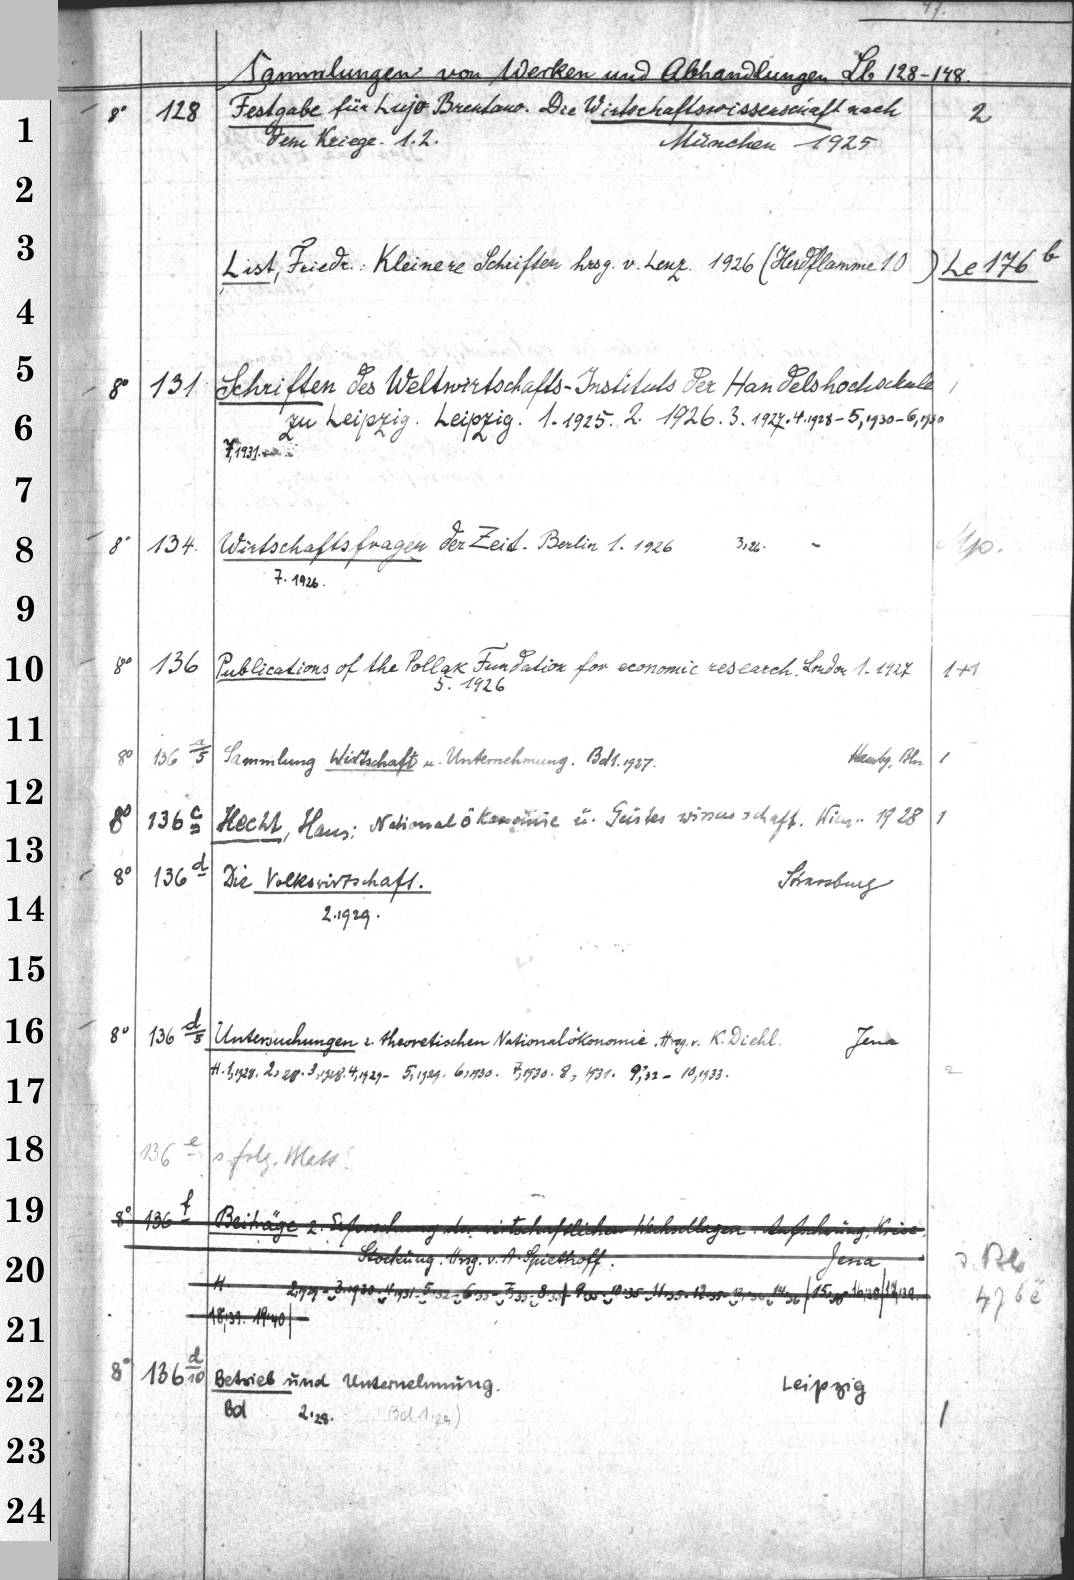 47.
Sammlungen von Werken und Abhandlungen Lb 128-148.
1 8° 128 Festgabe für Lujo Brentano. Die Wirtschaftswissenschaft nach 2
dem Kriege. 1.2. München 1925
2
3 List, Friedr.: Kleinere Schriften hrsg. v. Lenz. 1926 (Herdflamme 10) Le 176 b
4
5 8° 131 Schriften des Weltwirtschafts-Instituts der Handelshochschule 1
6 zu Leipzig. Leipzig. 1. 1925. 2. 1926. 3. 1927. 4. 1928 - 5, 1930 - 6, 1930
7, 1931.
7
8 8° 134. Wirtschaftsfragen der Zeit. Berlin 1. 1926 3,26. -
7. 1926.
9
10 8° 136 Publications of the Pollak Fundation for economic research. London 1. 1927 1+1
5. 1926
11 8° 136 a/5 Sammlung Wirtschaft u. Unternehmung. Bd 1. 1927. Hambg, Bln 1
12
8° 136 c Hecht, Hans: Nationalökonomie u. Geisteswissenschaft. Wien 1928 1
13 8° 136 d Die Volkswirtschaft. Strassburg
14 2.1929.
15
16 8° 136 d/5 Untersuchungen z. theoretischen Nationalökonomie. Hrsg. v. K. Diehl. Jena
17 H. 1,1928. 2,28. 3,1928. 4,1929 - 5,1929. 6,1930. 7,1930. 8, 1931. 9,32 - 10,1933.
18 136 e s. folg. Blatt!
19 8° 136 f Beiträge z. Erforschung der wirtschaftlichen Wechsellagen. Aufschwung, Krise,
20 Stockung. Hrsg. v. A. Spiethoff. Jena
H. 2,1929 - 3.1930 - 4,1931 - 5,32 - 6,33 - 7,33 - 8,35 9,35 - 10,35 - 11,35 - 12,35 - 13,36 - 14,36 15,38 - 16,38 17,39.
47 b e
21 18,39. 19,40
22 8° 136 d/10 Betrieb und Unternehmung. Leipzig
Bd 2,28. (Bd 1.29) 1
23
24